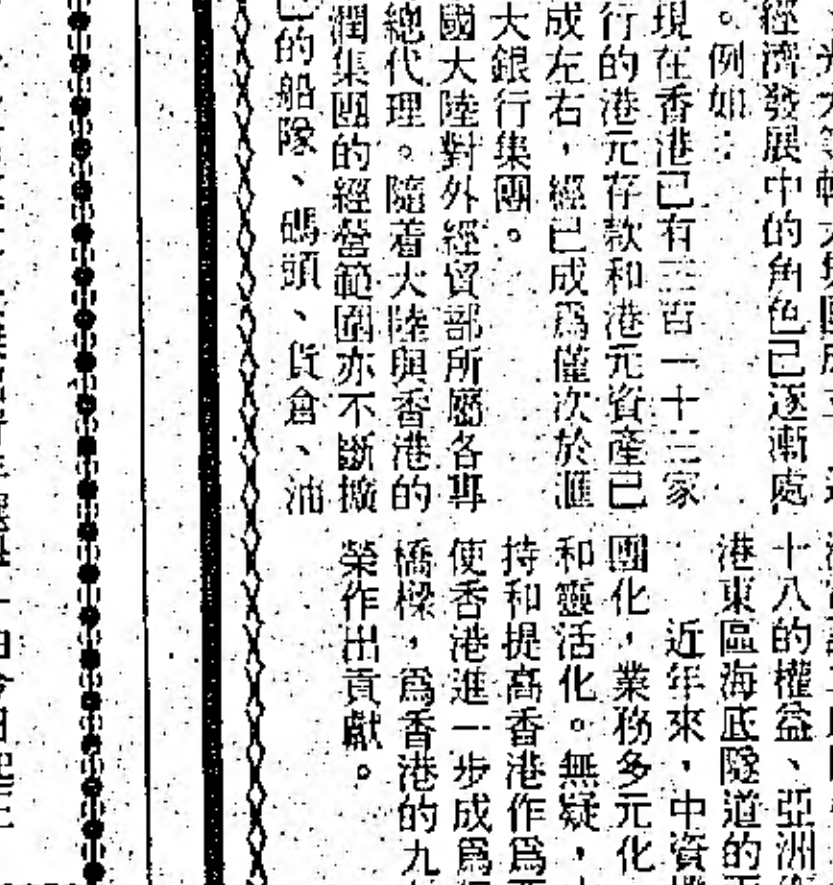 經濟發展中的角色已逐漸處
。例如：
現在香港已有三百一十三家
行的港元存款和港元資產已
成左右，經已成爲僅次於滙
大銀行集團。
國大陸對外經貿部所屬各專
總代理。隨着大陸與香港的
潤集團的經營範圍亦不斷擴
的船隊、碼頭、貨倉、油
十八的權益、亞洲
港東區海底隧道的
近年來，中資
團化，業務多元化
和靈活化。無疑，
持和提高香港作爲
使香港進一步成爲
橋樑，爲香港的九
榮作出貢獻。